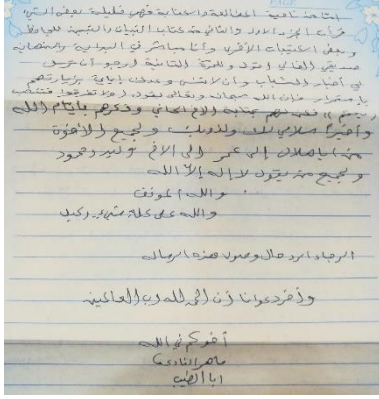 PAGE
أما من ناحية المطالعة والكتابة فهي قليلة بعض الشيء
قرأت الجزء الأول والثاني من كتاب التبيان والتبيين للجاحظ
وبعض الكتيبات الأخرى وأنا مباشر في البداية والنهاية
صديقي الغالي أعود وللمرة الثانية أرجو أن ترسل
لي أخبار الشباب وأن لا تنس وعدك إياي بزيارتهم
بإستمرار فإن الله سبحانه وتعالى يقول (ولا تفرقوا فتفشلوا
فكن لهم بمثابة الأخ الحاني وذكرهم بأيام الله
وأخيراً سلامي لك ولذويك ولجميع الأخوة
من إلى عمر إلى الأخ وليد ومحمود
ولجميع من يقول لا إله إلا الله
والله الموفق
والله على كل شيء وكيل
الرجاء الرد حال وصول هذه الرسالة
وآخر دعوانا أن الحمد لله رب العالمين
أخوكم في الله
ماهر
أبا الطيب